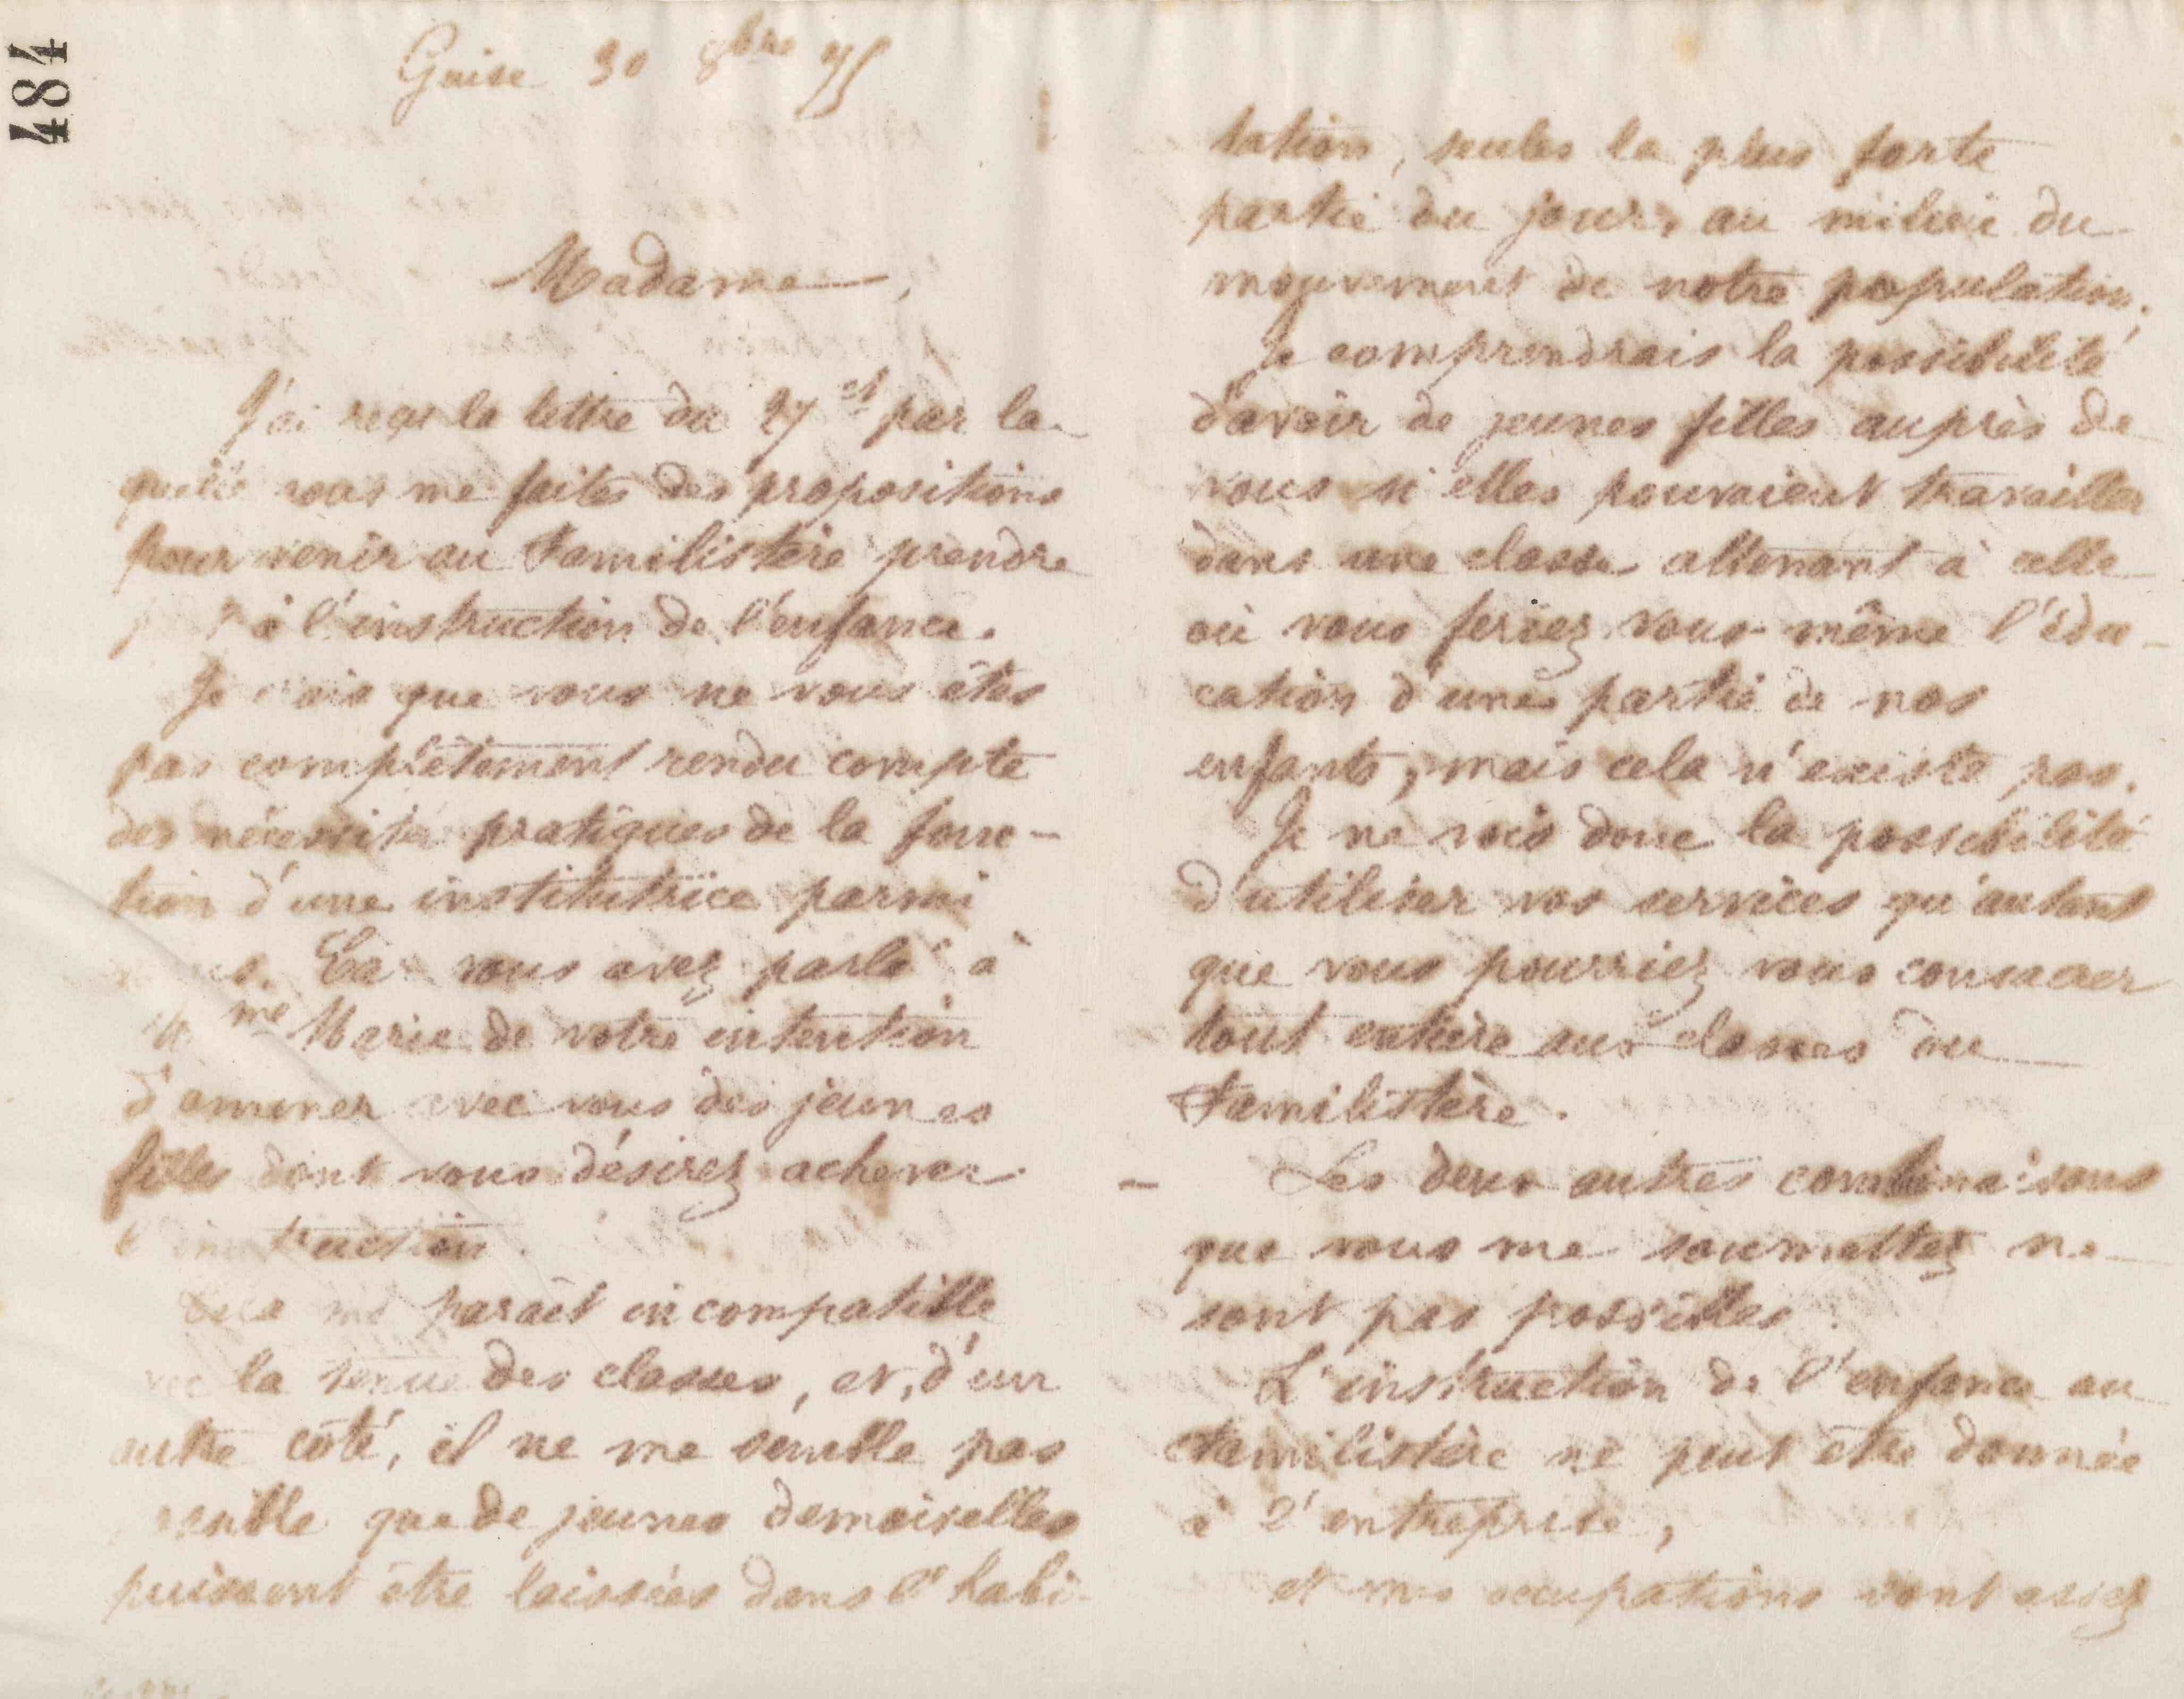 484
Guise 30 8bre 75
Madame,
J'ai reçu la lettre du 27 ct par la-
quelle vous me faites des propositions
pour venir au Familistère prendre
à l'instruction de l'enfance.
Je crois que vous ne vous êtes
pas complètement rendu compte
des nécessités pratiques de la fonc-
tion d'une institutrice parmi
vous avez parlé à
Mme Marie de votre intention
d'amener avec vous des jeunes
filles dont vous désirez achever
l'instruction.
Cela me paraît incompatible
avec la tenue des classes, et, d'un
autre côté, il ne me semble pas
que de jeunes demoiselles
puissent être laissées dans l'habi-
tation, seules la plus forte
partie du jour, au milieu du
mouvement de notre population.
Je comprendrais la possibilité
d'avoir de jeunes filles auprès de
vous si elles pouvaient travailler
dans une classe attenant à celle
où vous feriez vous-même l'édu-
cation d'une partie de nos
enfants, mais cela n'existe pas.
Je ne vois donc la possibilité
d'utiliser vos services qu'autant
que vous pourriez vous consacrer
tout entière aux classes du
Familistère.
Les deux autres combinaisons
que vous me soumettez ne
sont pas possibles.
L'instruction de l'enfance au
Familistère ne peut être donnée
à l'entreprise,
et mes occupations sont assez